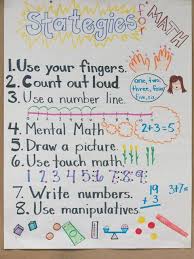 Stategies
MATH
1. Use your fingers.
2. Count out loud
one, two,
three, four
3. Use a number line.
4. Mental Math
2+3=5
5. Draw a picture.
6. Use touch math.
1 2 3 4 5 6 7 8 9
7. Write numbers.
19
+ 3
3+7=
8. Use manipulatives.